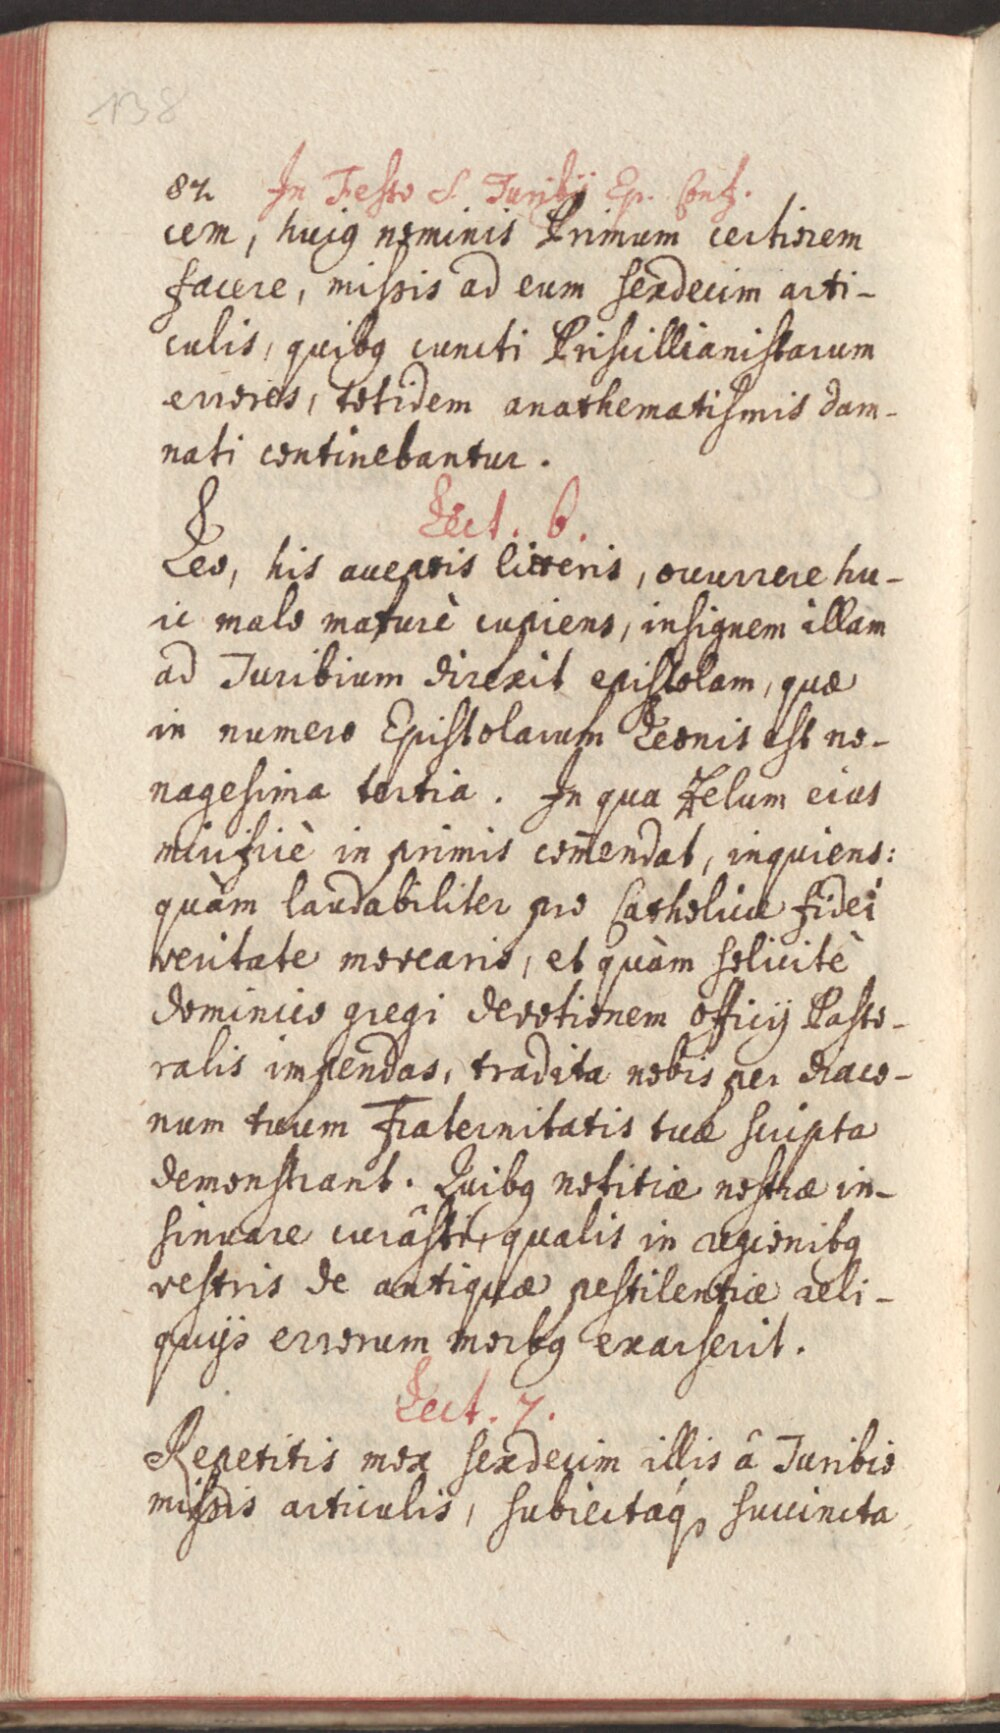 138
82 In Festo S. Turibij Ep. Conf.
cem, huiꝯ nominis Primum certiorem
facere, missis ad eum sexdecim arti-
culis, quibꝯ cuncti Priscillianistarum
errores, totidem anathematismis dam-
nati continebantur.
Lect. 6.
Leo, his acceptis litteris, occurrere hu-
ic malo maturè cupiens, insignem illam
ad Turibium direxit epistolam, quæ
in numero Epistolarum Leonis est no-
nagesima tertia. In qua Zelum eius
mirificè in primis com̄endat, inquiens:
quàm laudabiliter pro Catholicæ fidei
veritate movearis, et quàm solicitè
dominico gregi devotionem officij Pasto-
ralis impendas, tradita nobis per diaco-
num tuum Fraternitatis tuæ scripta
demonstrant. Quibꝯ notitiæ nostræ in-
sinuare curâsti, qualis in regionibꝯ
vestris de antiquæ pestilentiæ reli-
quijs errorum morbꝯ exarserit.
Lect. 7.
Repetitis mox sexdecim illis â Turibio
missis articulis, subiectáq3 succincta